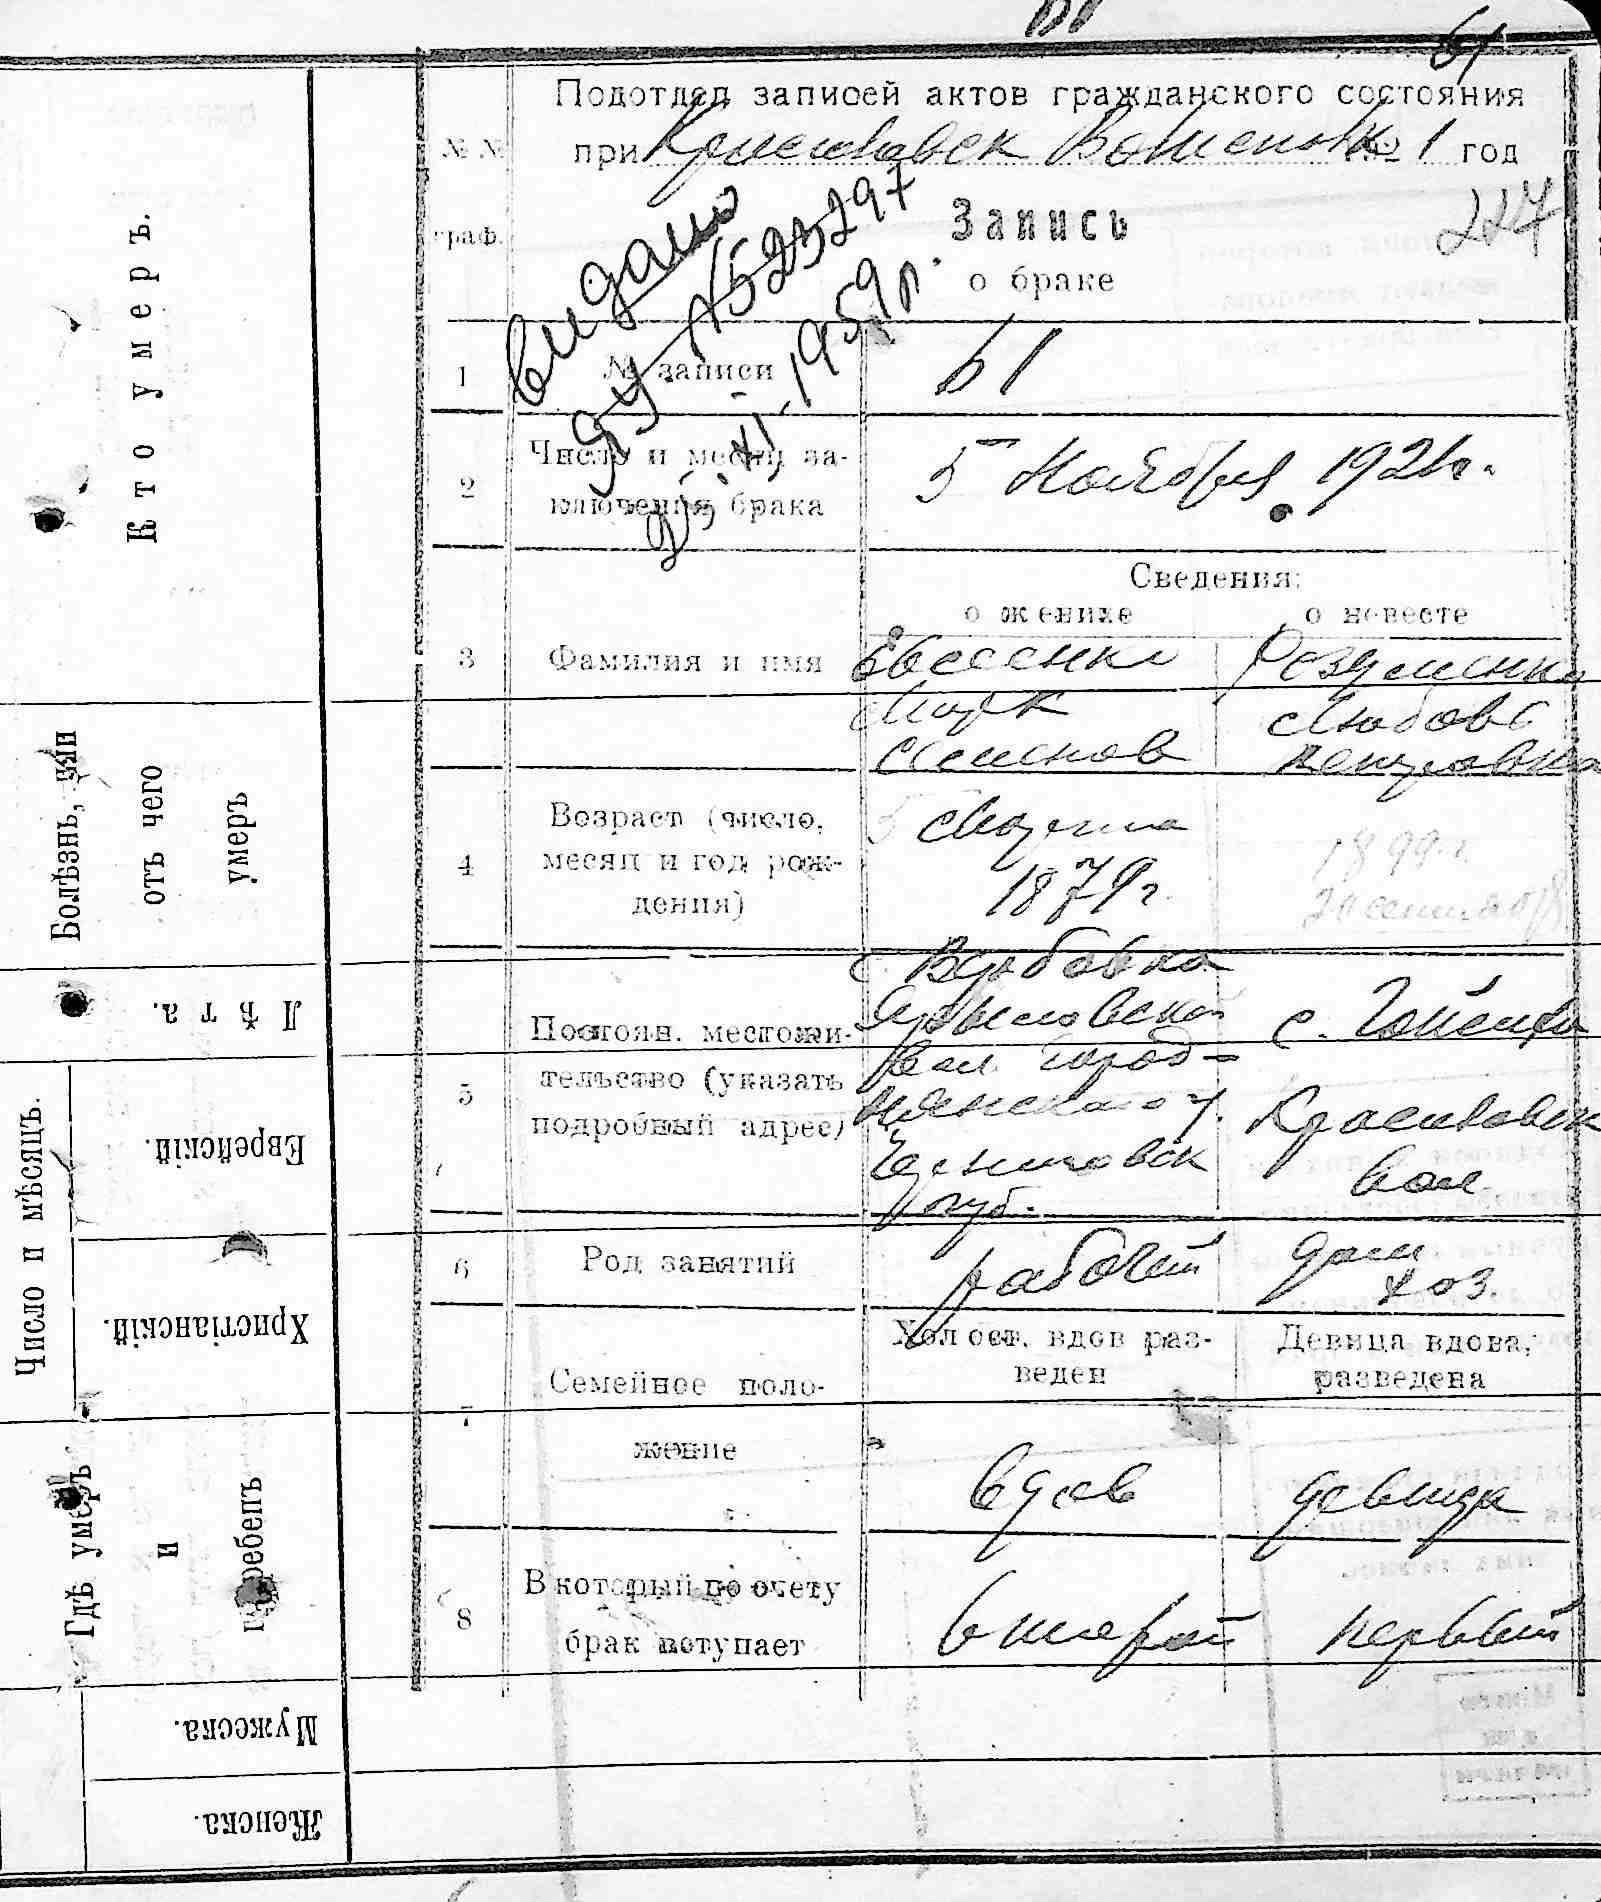 61
Подотдел записей актов гражданского состояния
при 1 год
№ №
граф.
Запись
о браке
227
видано
ЯУ 1523297
25.XI.1959 р.
1
№ записи
61
2
Число и месяц за-
ключения брака
5 Ноября 1921 г.
Сведения:
о женихе
о невесте
3
Фамилия и имя
Евсеенко
Марк
Семенов
Любовь
Петровна
4
Возраст (число,
месяц и год рож-
дения)
5 Марта
1879 г.
1899 г.
20 сентября
5
Постоян. местожи-
тельство (указать
подробный адрес)
с Вербовка
вол. Город-
нянского у.
Черниговск
губ.
с.
вол.
6
Род занятий
рабочий
дом.
хоз.
7
Семейное поло-
жение
Холост. вдов раз-
веден
Девица вдова,
разведена
вдов
девица
8
В который по счету
брак вступает
второй
первый
Кто умеръ.
Болѣзнь, или
отъ чего
умеръ
Лѣта.
Число и мѣсяцъ.
Еврейскій.
Христіанскій.
Гдѣ умеръ
и
погребенъ
Мужеска.
Женска.